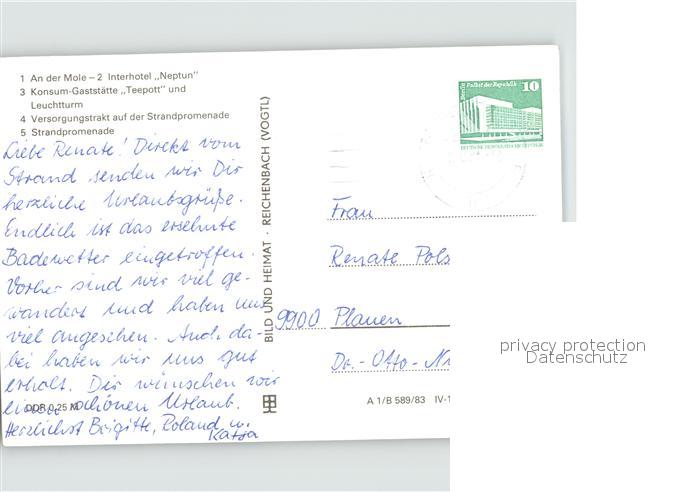 1 An der Mole – 2 Interhotel „Neptun"
3 Konsum-Gaststätte „Teepott" und
Leuchtturm
4 Versorgungstrakt auf der Strandpromenade
5 Strandpromenade
Liebe Renate! Direkt vom
Strand senden wir Dir
herzliche Urlaubsgrüße.
Endlich ist das ersehnte
Badewetter eingetroffen.
Vorher sind wir viel ge-
wandert und haben uns
viel angesehen. Auch da-
bei haben wir uns gut
erholt. Dir wünschen wir
einen schönen Urlaub.
Herzlichst Brigitte, Roland u.
Katja
DDR 0,25 M
BILD UND HEIMAT · REICHENBACH (VOGTL)
Berlin Palast der Republik
10
DEUTSCHE DEMOKRATISCHE REPUBLIK
Frau
Renate Pols
9900 Plauen
Dr.-Otto-Nu
A 1/B 589/83 IV-1
privacy protection
Datenschutz